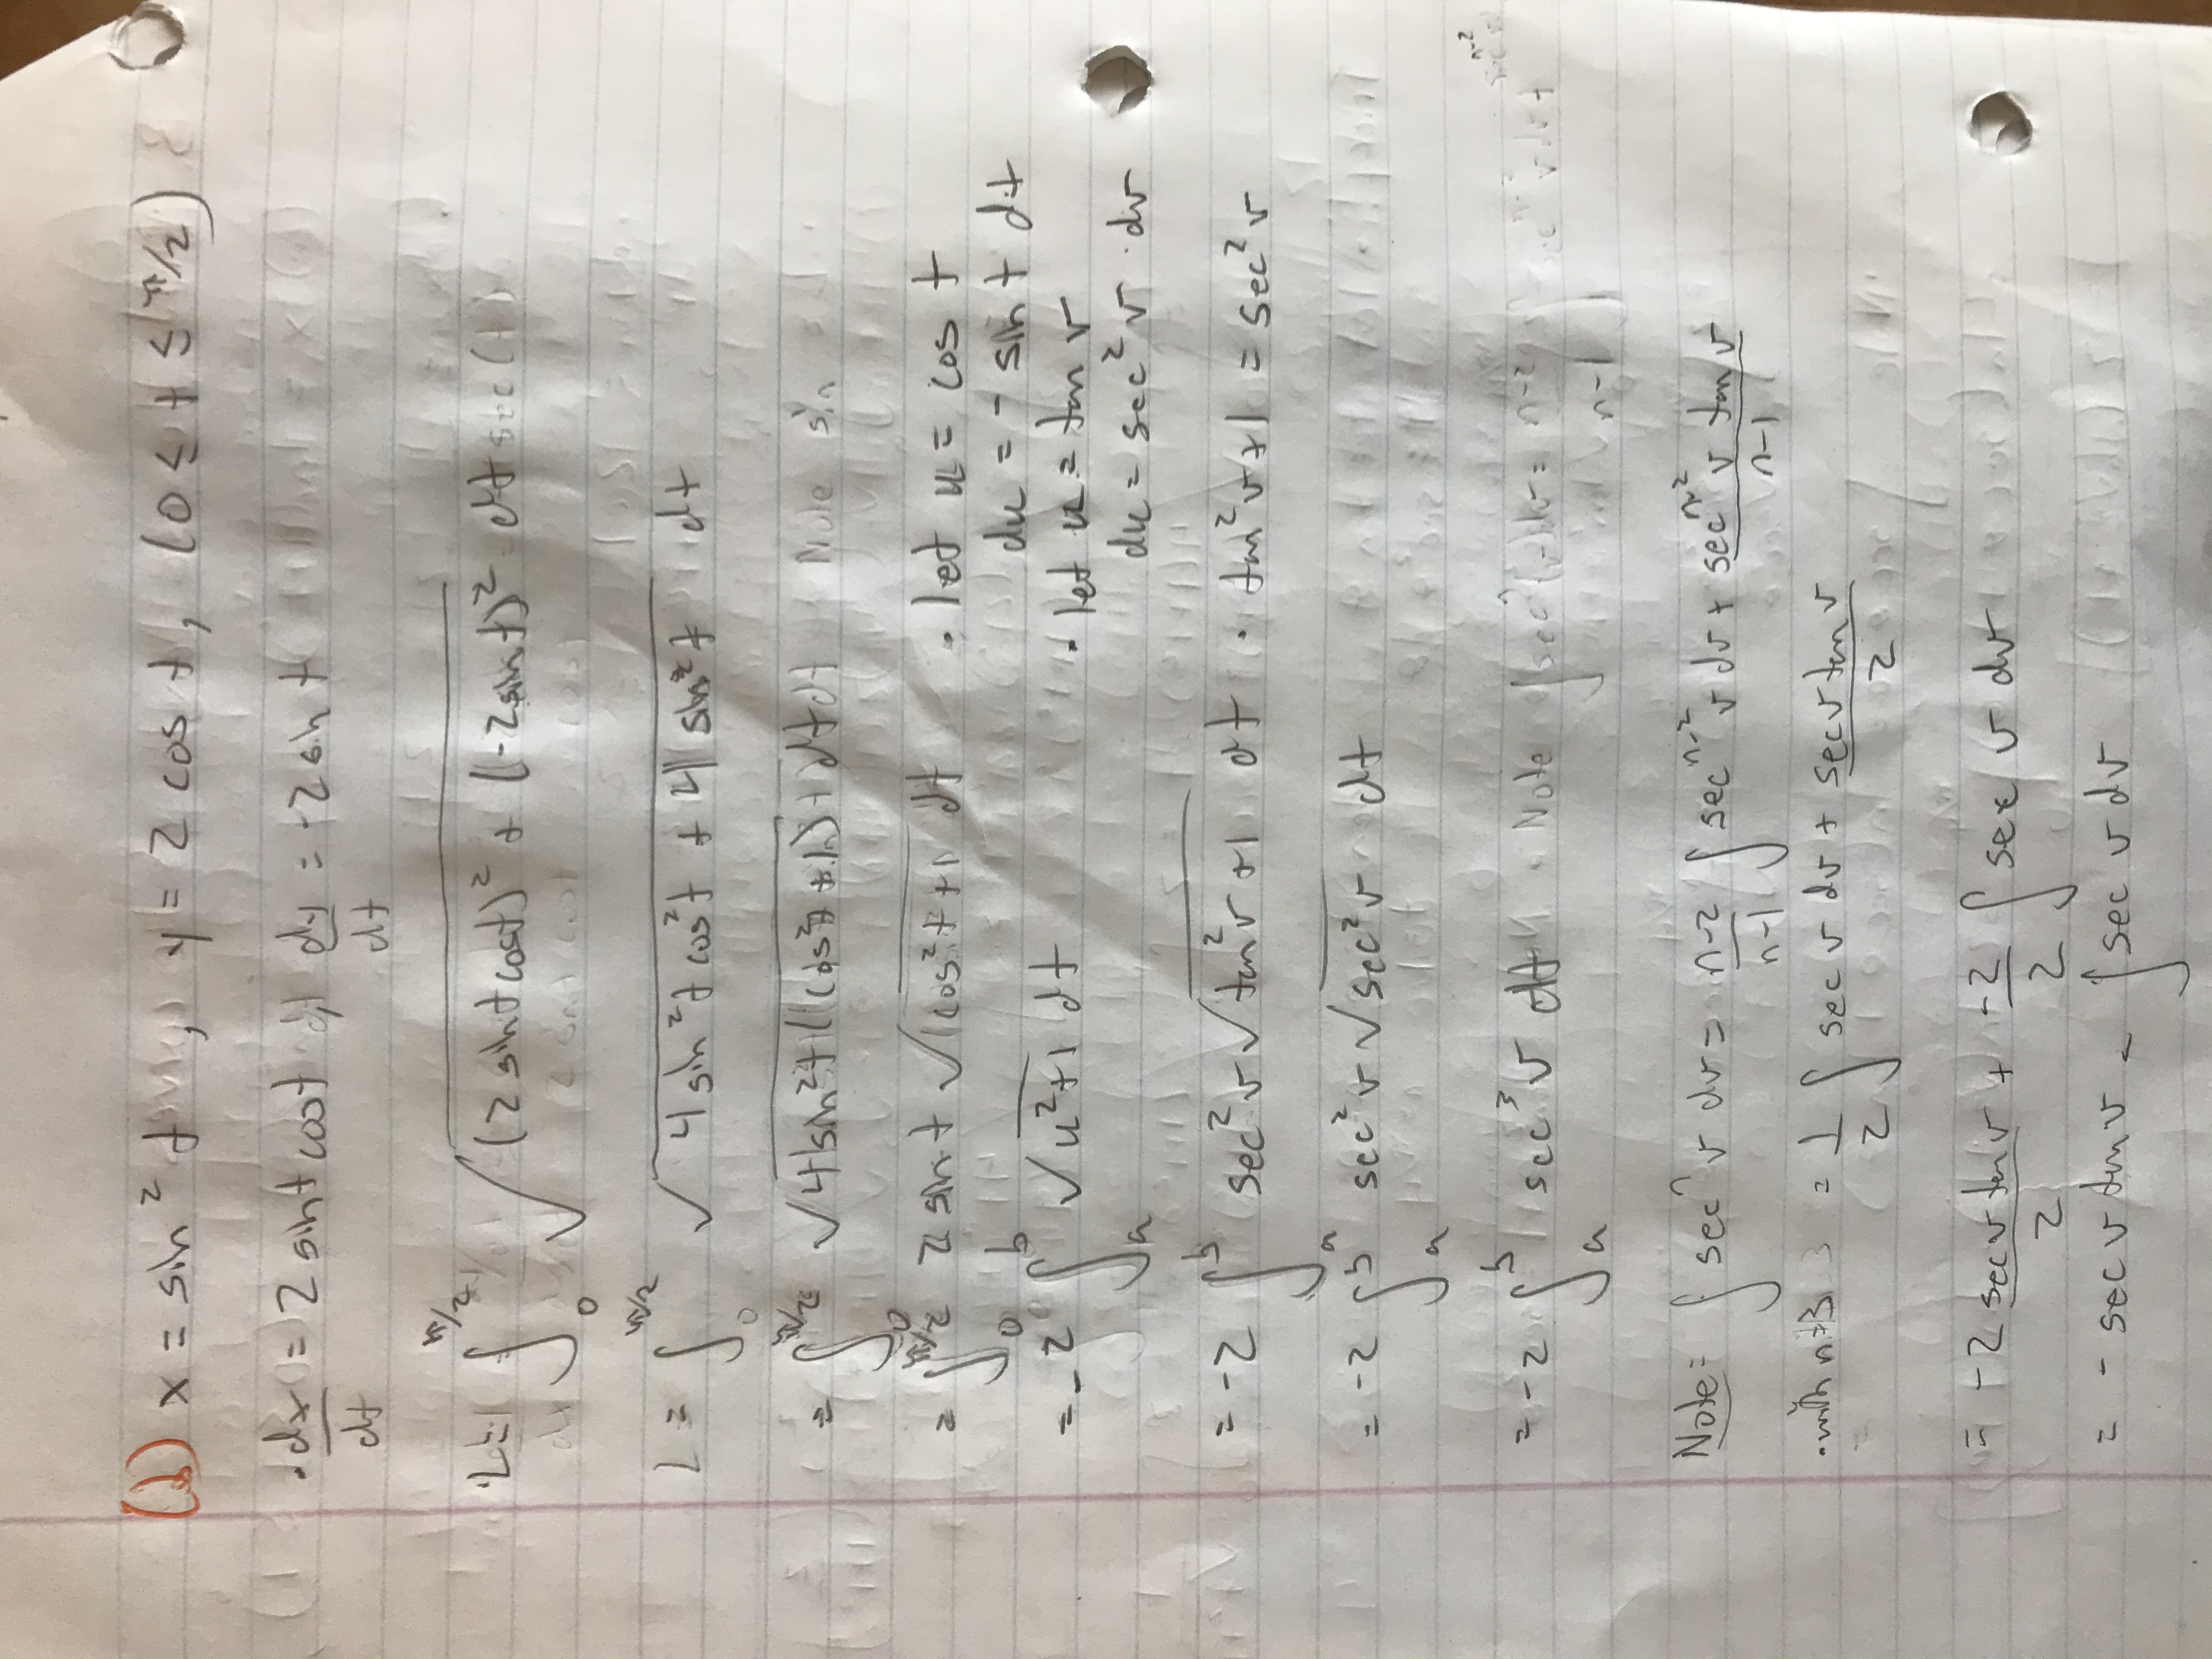 (b) x = sin² t , y = 2 cos t, (0 ≤ t ≤ π/2)
· dx/dt = 2 sin t cos t , dy/dt = -2 sin t
L = ∫₀^(π/2) √((2 sin t cos t)² + (-2 sin t)²) dt
L = ∫₀^(π/2) √(4 sin² t cos² t + 4 sin² t) dt
= ∫₀^(π/2) √(4 sin² t (cos² t + 1)) dt
= ∫₀^(π/2) 2 sin t √(cos² t + 1) dt · let u = cos t
du = - sin t dt
= -2 ∫ₐᵇ √(u² + 1) dt · let u = tan v
du = sec² v · dv
= -2 ∫ₐᵇ sec² v √(tan² v + 1) dt · tan² v + 1 = sec² v
= -2 ∫ₐᵇ sec² v √(sec² v) dt
= -2 ∫ₐᵇ sec³ v dt
Note: ∫ secⁿ v dv = (n-2)/(n-1) ∫ secⁿ⁻² v dv + (secⁿ⁻² v tan v)/(n-1)
· with n=3 = 1/2 ∫ sec v dv + (sec v tan v)/2
= -2 (sec v tan v)/2 + -2/2 ∫ sec v dv
= - sec v tan v - ∫ sec v dv